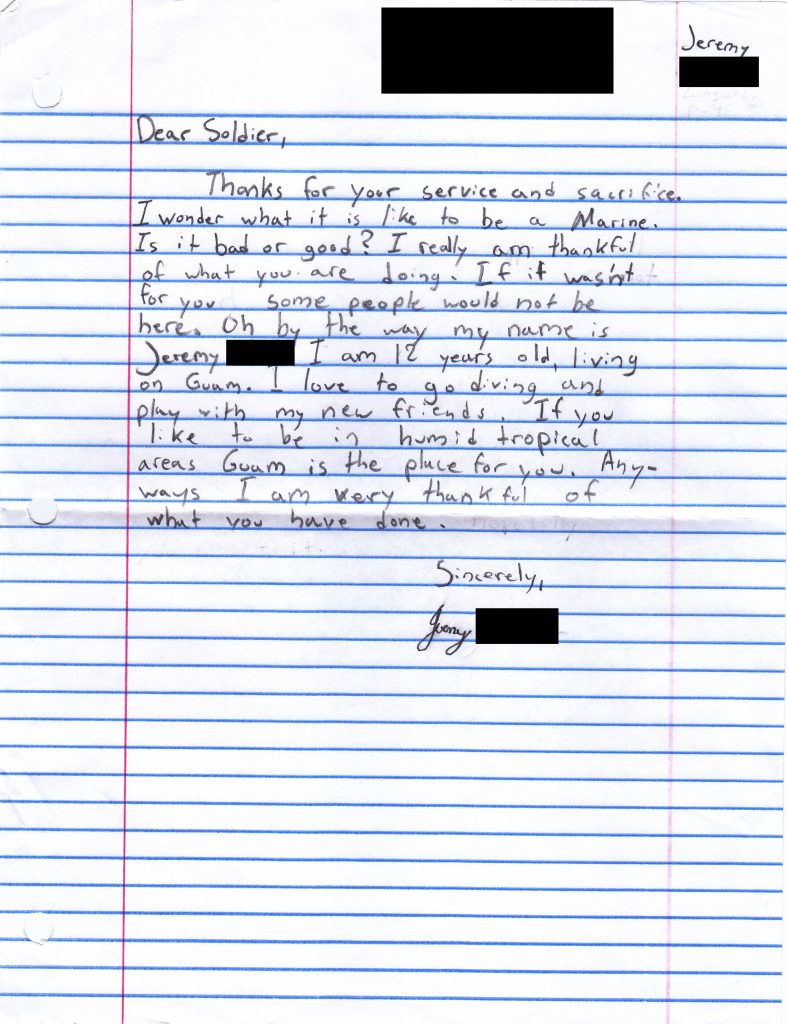 Jeremy
Dear Soldier,
Thanks for your service and sacrifice.
I wonder what it is like to be a Marine.
Is it bad or good? I really am thankful
of what you are doing. If it wasn't
for you some people would not be
here. Oh by the way my name is
Jeremy I am 12 years old, living
on Guam. I love to go diving and
play with my new friends. If you
like to be in humid tropical
areas Guam is the place for you. Any-
ways I am very thankful of
what you have done.
Sincerely,
Jeremy